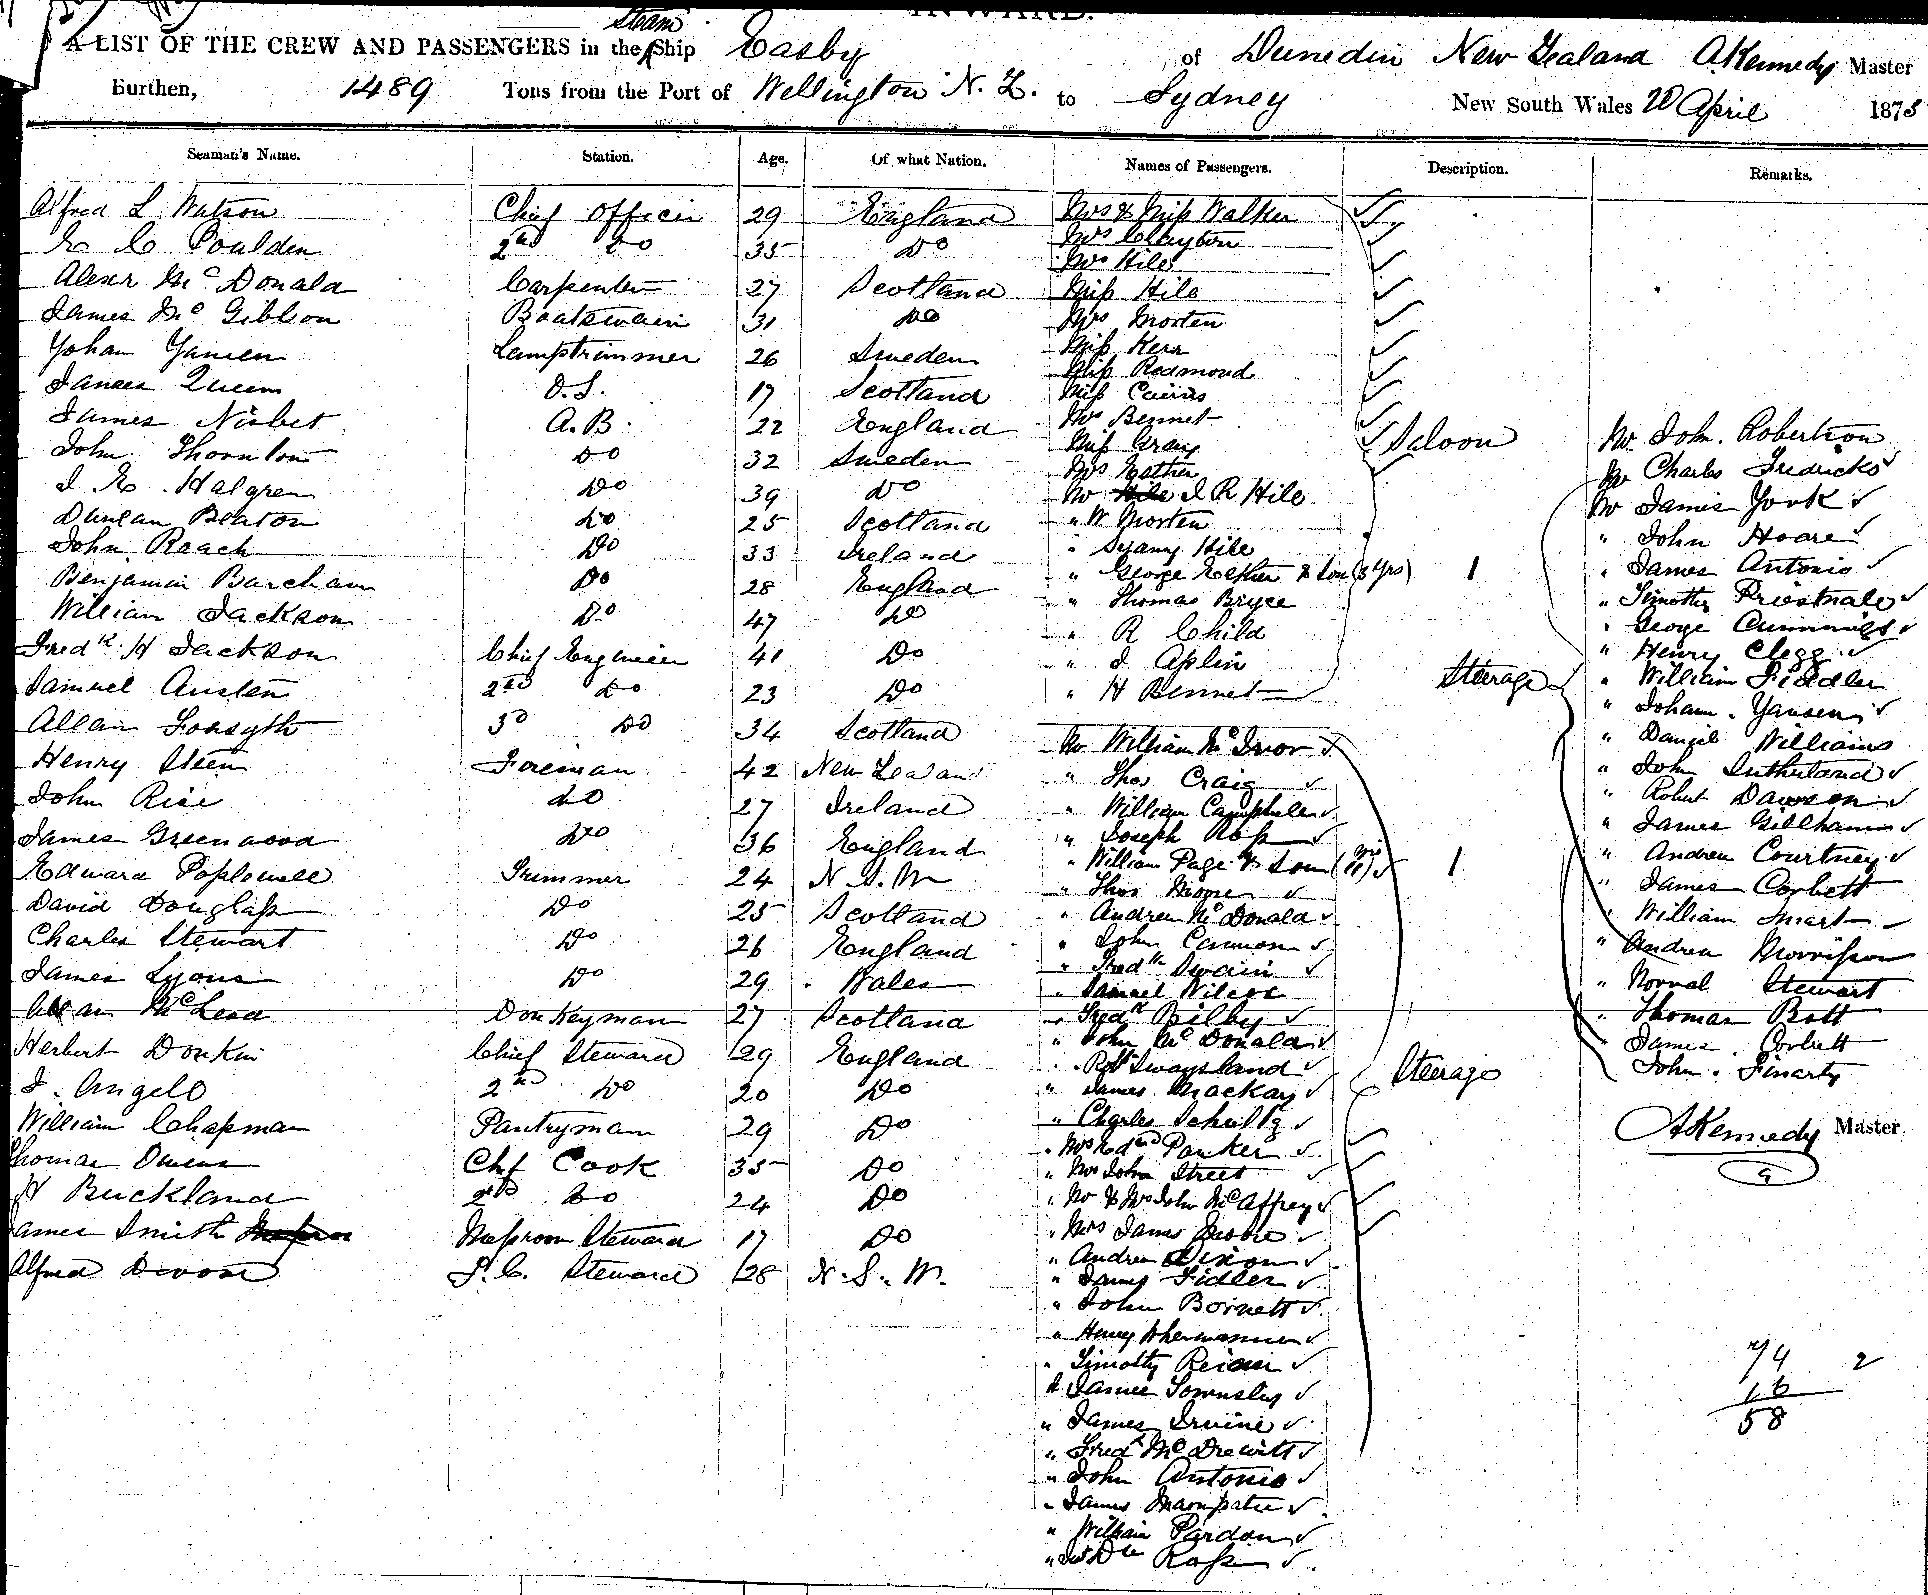 INWARD.
A LIST OF THE CREW AND PASSENGERS in the Steam Ship Easby of Dunedin New Zealand A Kennedy Master
Burthen, 1489 Tons from the Port of Wellington N. Z. to Sydney New South Wales 20 April 1878
Seaman's Name. Station. Age. Of what Nation. Names of Passengers. Description. Remarks.
Alfred L Watson Chief Officer 29 England
E C Poulden 2nd Do 35 Do
Alexr McDonald Carpenter 27 Scotland
James McGibbon Boatswain 31 Do
Yohan Yansen Lamptrimmer 26 Sweden
James Queen O.S. 17 Scotland
James Nisbet A.B. 22 England
John Thornton Do 32 Sweden
J E Halgren Do 39 Do
Duncan Beaton Do 25 Scotland
John Roach Do 33 Ireland
Benjamin Barcham Do 28 England
William Jackson Do 47 Do
Fredk H Jackson Chief Engineer 41 Do
Samuel Austen 2nd Do 23 Do
Allan Forsyth 3d Do 34 Scotland
Henry Steen Foreman 42 New Zealand
John Rice do 27 Ireland
James Greenwood Do 36 England
Edward Poplowell Trimmer 24 N. S. W
David Douglass Do 25 Scotland
Charles Stewart Do 26 England
James Lyons Do 29 Wales
Allan McLeod Donkeyman 27 Scotland
Herbert Donkin Chief Steward 29 England
J. Angell 2nd Do 20 Do
William Chapman Pantryman 29 Do
Thomas Owens Chf Cook 35 Do
H Buckland 2nd Do 24 Do
James Smith Messroom Steward 17 Do
Alfred Divose S.C. Steward 28 N. S. W.
Mrs & Miss Walker
Mrs Clayton
Mrs Hile
Miss Hile
Mrs Morten
Miss Kerr
Miss Redmond
Miss Cairns
Mrs Bennet
Miss Gray
Mrs Eather
Mr Hile J R Hile
" W Morten
" Hile
" George Eather & Son (3 yrs) 1
" Thomas Bryce
" R Child
" J Aplin
" H Bennet
Saloon
Mr William McIvor
" Thos Craig
" William Campbell
" Joseph Ross
" William Page & Son (11 yrs) 1
" Thos Moore
" Andrew McDonald
" John Cannon
" Fredk Swain
" Samuel Wilcox
" Fredk Bilby
" John McDonald
" Robt Swaysland
" James Mackay
" Charles Schultz
" Mrs Edwd Parker
" Mrs John Street
" Mr & Mrs John McAffrey
" Mrs James Moore
" Andrew Dixon
" James Fidler
" John Bornett
" Henry
" Timothy
" James Townsley
" James Irvine
" Fredk McDrewitt
" John Antonio
" James
" William Pardon
" Ross
Steerage
Mr John Robertson
Mr Charles Fredricks
Mr James York
" John Hoare
" James Antonio
" Timothy Priestnale
" George Cummings
" Henry Clegg
" William Fiddler
" Johann Yansen
" Daniel Williams
" John Sutherland
" Robert Dawson
" James Gillham
" Andrew Courtney
" James Corbett
" William Smart
" Andrew Morrisson
" Norval Stewart
" Thomas Bott
" James Corbett
" John Finarty
Steerage
A Kennedy Master
74 2
16
58